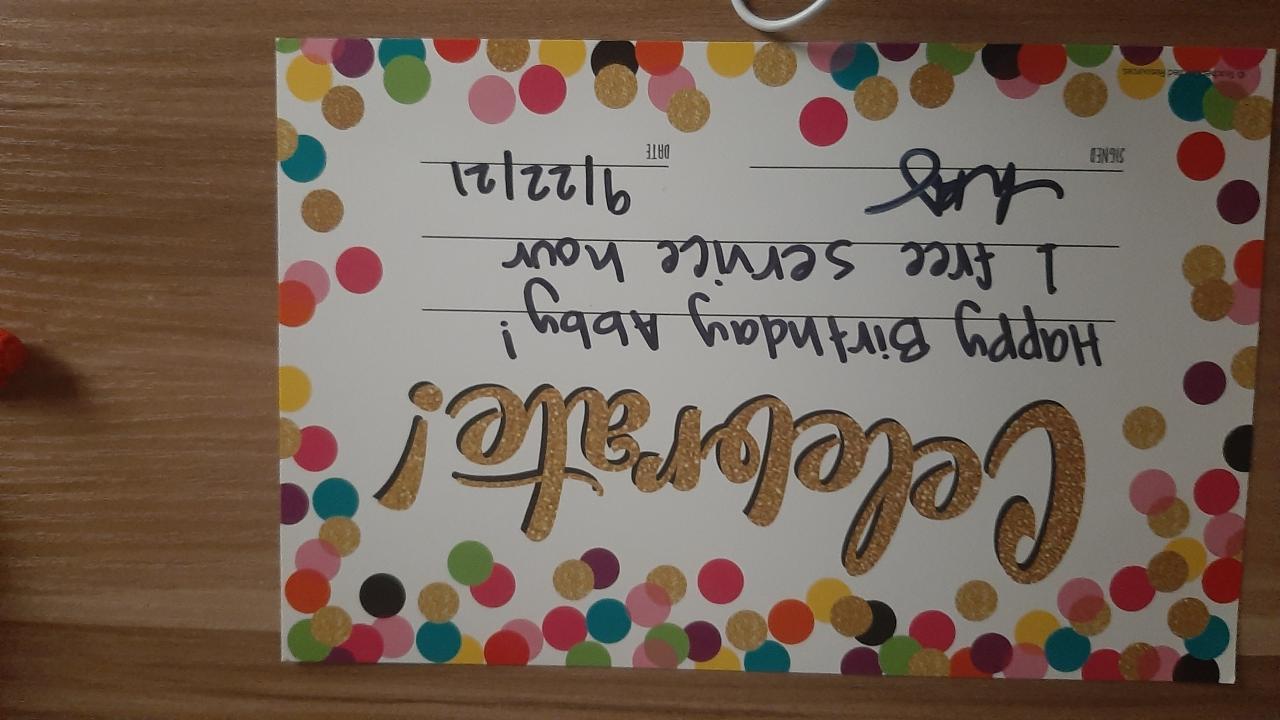 Celebrate!
Happy Birthday Abby!
1 free service hour
9/22/21
SIGNED
DATE
© Teacher Created Resources